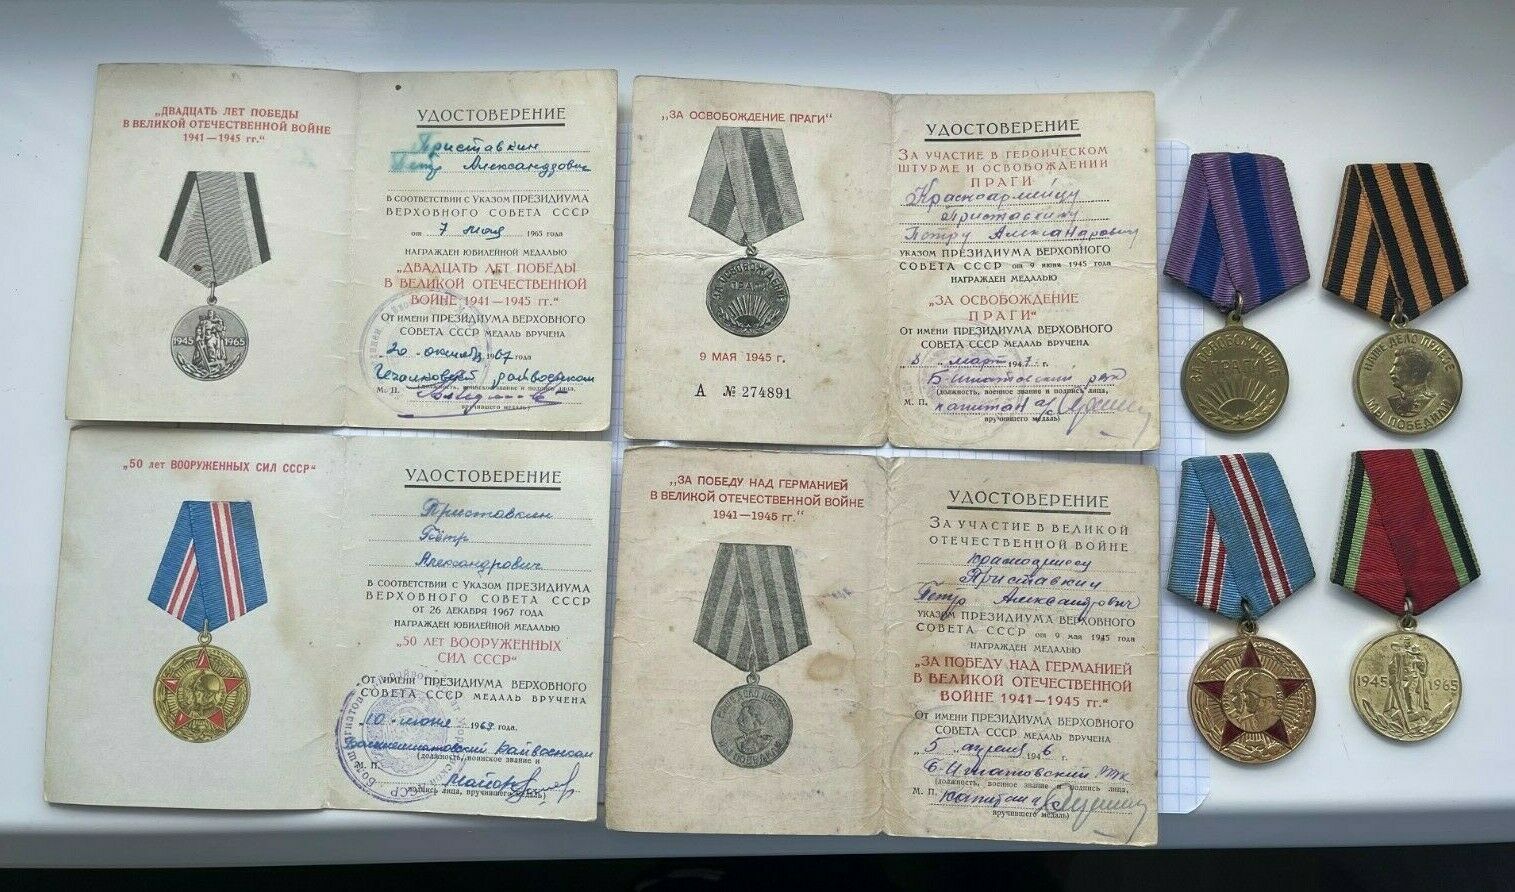 „ДВАДЦАТЬ ЛЕТ ПОБЕДЫ
В ВЕЛИКОЙ ОТЕЧЕСТВЕННОЙ ВОЙНЕ
1941—1945 гг.“
1945 1965
УДОСТОВЕРЕНИЕ
Приставкин
Петр Александрович
В СООТВЕТСТВИИ С УКАЗОМ ПРЕЗИДИУМА
ВЕРХОВНОГО СОВЕТА СССР
от 7 мая 1965 года
НАГРАЖДЕН ЮБИЛЕЙНОЙ МЕДАЛЬЮ
„ДВАДЦАТЬ ЛЕТ ПОБЕДЫ
В ВЕЛИКОЙ ОТЕЧЕСТВЕННОЙ
ВОЙНЕ 1941—1945 гг.“
ОТ ИМЕНИ ПРЕЗИДИУМА ВЕРХОВНОГО
СОВЕТА СССР МЕДАЛЬ ВРУЧЕНА
„20 октября 1967 года
райвоенком
М. П. (должность, воинское звание и подпись лица,
вручившего медаль)
„ЗА ОСВОБОЖДЕНИЕ ПРАГИ“
ЗА ОСВОБОЖДЕНИЕ
ПРАГИ
9 МАЯ 1945 г.
А № 274891
УДОСТОВЕРЕНИЕ
ЗА УЧАСТИЕ В ГЕРОИЧЕСКОМ
ШТУРМЕ И ОСВОБОЖДЕНИИ
ПРАГИ
Красноармейцу
Приставкину
Петру Александровичу
УКАЗОМ ПРЕЗИДИУМА ВЕРХОВНОГО
СОВЕТА СССР от 9 июня 1945 года
НАГРАЖДЕН МЕДАЛЬЮ
„ЗА ОСВОБОЖДЕНИЕ
ПРАГИ“
ОТ ИМЕНИ ПРЕЗИДИУМА ВЕРХОВНОГО
СОВЕТА СССР МЕДАЛЬ ВРУЧЕНА
март 1947 г.
Б-Игнатовский РВК
(должность, военное звание и подпись лица,
М. П. капитан а/с
вручившего медаль)
„50 лет ВООРУЖЕННЫХ СИЛ СССР“
УДОСТОВЕРЕНИЕ
Приставкин
Пётр
Александрович
В СООТВЕТСТВИИ С УКАЗОМ ПРЕЗИДИУМА
ВЕРХОВНОГО СОВЕТА СССР
ОТ 26 ДЕКАБРЯ 1967 ГОДА
НАГРАЖДЕН ЮБИЛЕЙНОЙ МЕДАЛЬЮ
„50 ЛЕТ ВООРУЖЕННЫХ
СИЛ СССР“
ОТ ИМЕНИ ПРЕЗИДИУМА ВЕРХОВНОГО
СОВЕТА СССР МЕДАЛЬ ВРУЧЕНА
„10 июня 1969 года.
Большеигнатовский Райвоенком
(должность, воинское звание и
М. П. Майор
подпись лица, вручившего медаль)
„ЗА ПОБЕДУ НАД ГЕРМАНИЕЙ
В ВЕЛИКОЙ ОТЕЧЕСТВЕННОЙ ВОЙНЕ
1941—1945 гг.“
УДОСТОВЕРЕНИЕ
ЗА УЧАСТИЕ В ВЕЛИКОЙ
ОТЕЧЕСТВЕННОЙ ВОЙНЕ
красноармеец
Приставкин
Петр Александрович
УКАЗОМ ПРЕЗИДИУМА ВЕРХОВНОГО
СОВЕТА СССР от 9 мая 1945 года
НАГРАЖДЕН МЕДАЛЬЮ
„ЗА ПОБЕДУ НАД ГЕРМАНИЕЙ
В ВЕЛИКОЙ ОТЕЧЕСТВЕННОЙ
ВОЙНЕ 1941—1945 гг.“
ОТ ИМЕНИ ПРЕЗИДИУМА ВЕРХОВНОГО
СОВЕТА СССР МЕДАЛЬ ВРУЧЕНА
„5 апреля 1946 г.
Б-Игнатовский РВК
(должность, военное звание и подпись лица,
М. П. капитан а/с
вручившего медаль)
ЗА ОСВОБОЖДЕНИЕ
ПРАГА
НАШЕ ДЕЛО ПРАВОЕ
МЫ ПОБЕДИЛИ
1945 1965